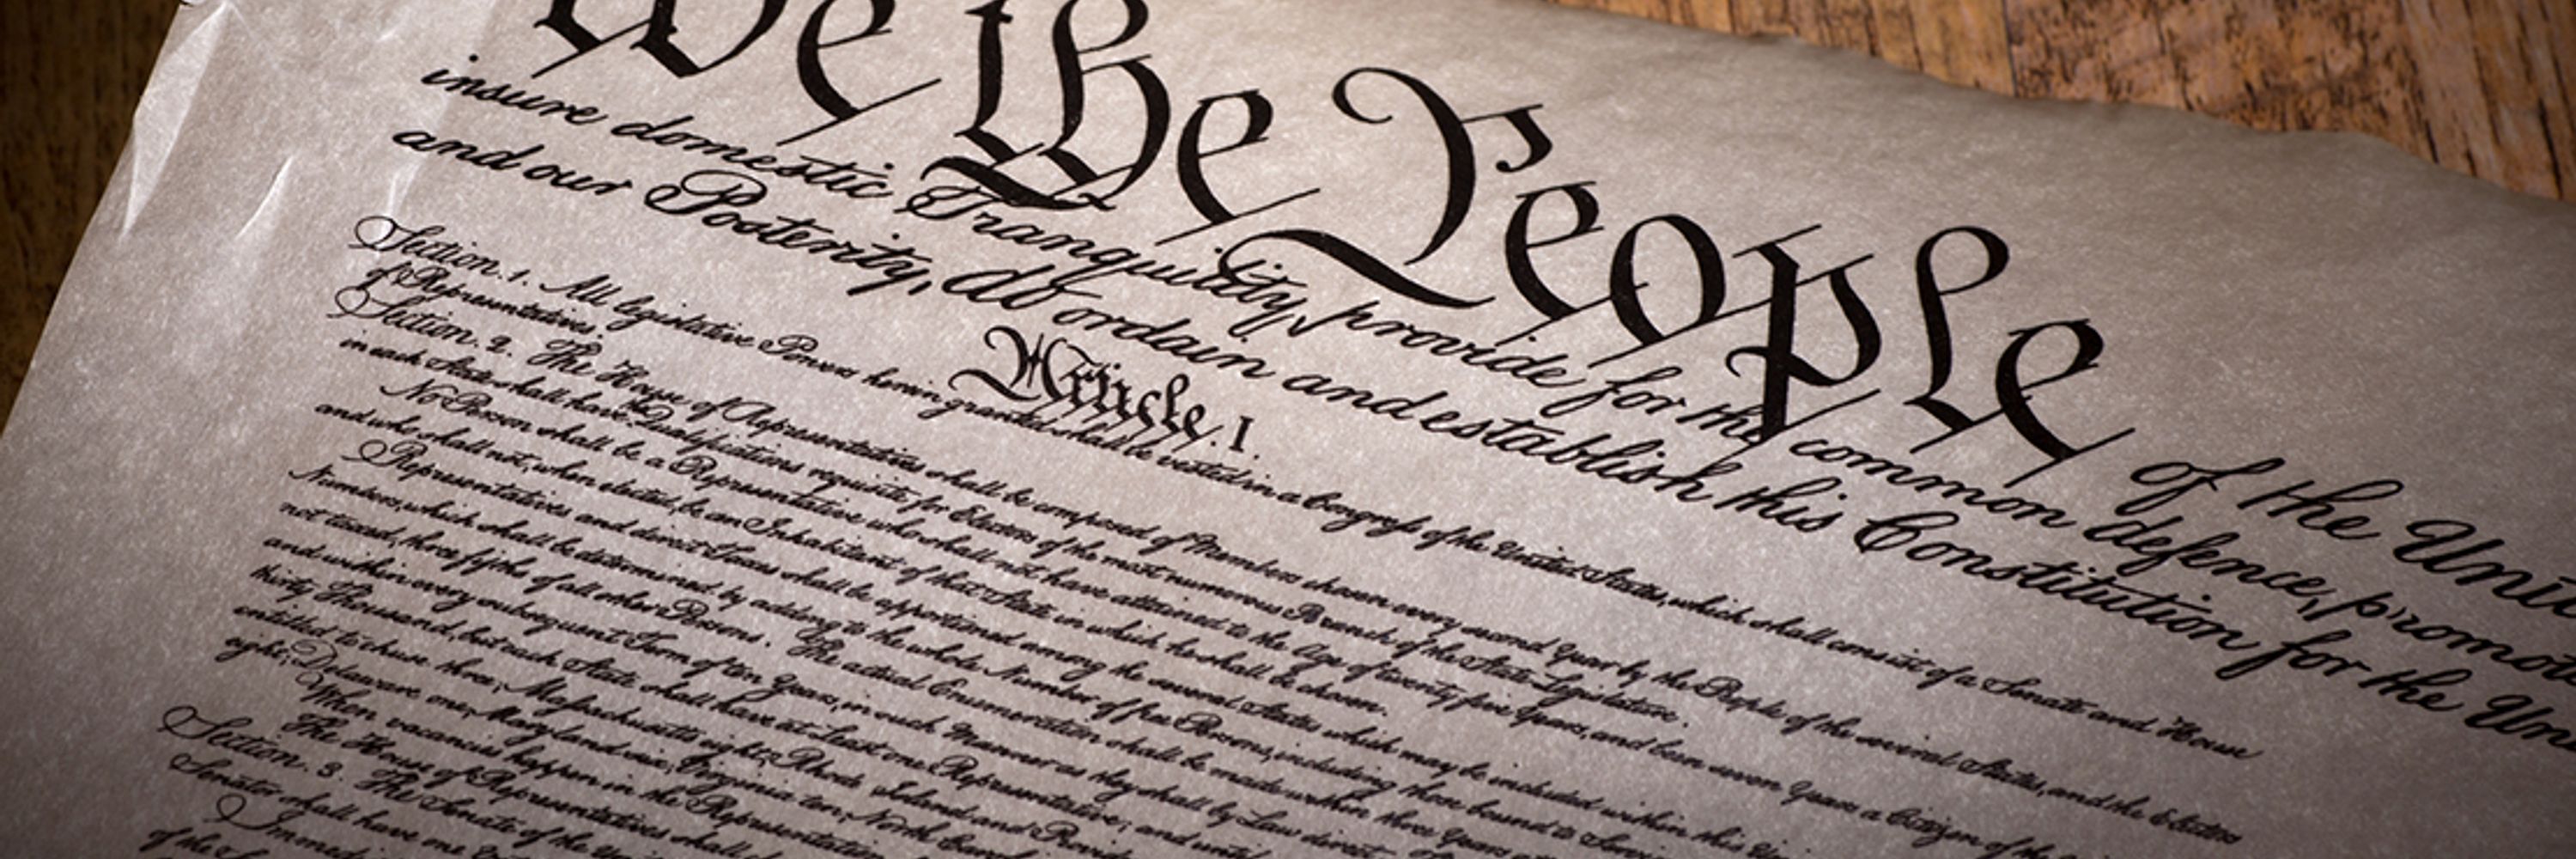 We the People of the Unit
insure domestic Tranquility, provide for the common defence, promot
and our Posterity, do ordain and establish this Constitution for the Un
Article. I.
Section. 1. All legislative Powers herein granted shall be vested in a Congress of the United States, which shall consist of a Senate and House
of Representatives.
Section. 2. The House of Representatives shall be composed of Members chosen every second Year by the People of the several States, and the Electors
in each State shall have the Qualifications requisite for Electors of the most numerous Branch of the State Legislature.
No Person shall be a Representative who shall not have attained to the Age of twenty five Years, and been seven Years a Citizen of the
and who shall not, when elected, be an Inhabitant of that State in which he shall be chosen.
Representatives and direct Taxes shall be apportioned among the several States which may be included within this
Numbers, which shall be determined by adding to the whole Number of free Persons, including those bound to
not taxed, three fifths of all other Persons. The actual Enumeration shall be made within three Years
and within every subsequent Term of ten Years, in such Manner as they shall by Law direct.
thirty Thousand, but each State shall have at Least one Representative; and until
entitled to chuse three, Massachusetts eight, Rhode Island and Provide
eight, Delaware one, Maryland six, Virginia ten, North Caro
When vacancies happen in the Representation
The House of Representatives shall
Section. 3. The Senate of the
Senator shall have one
Immedi
of the